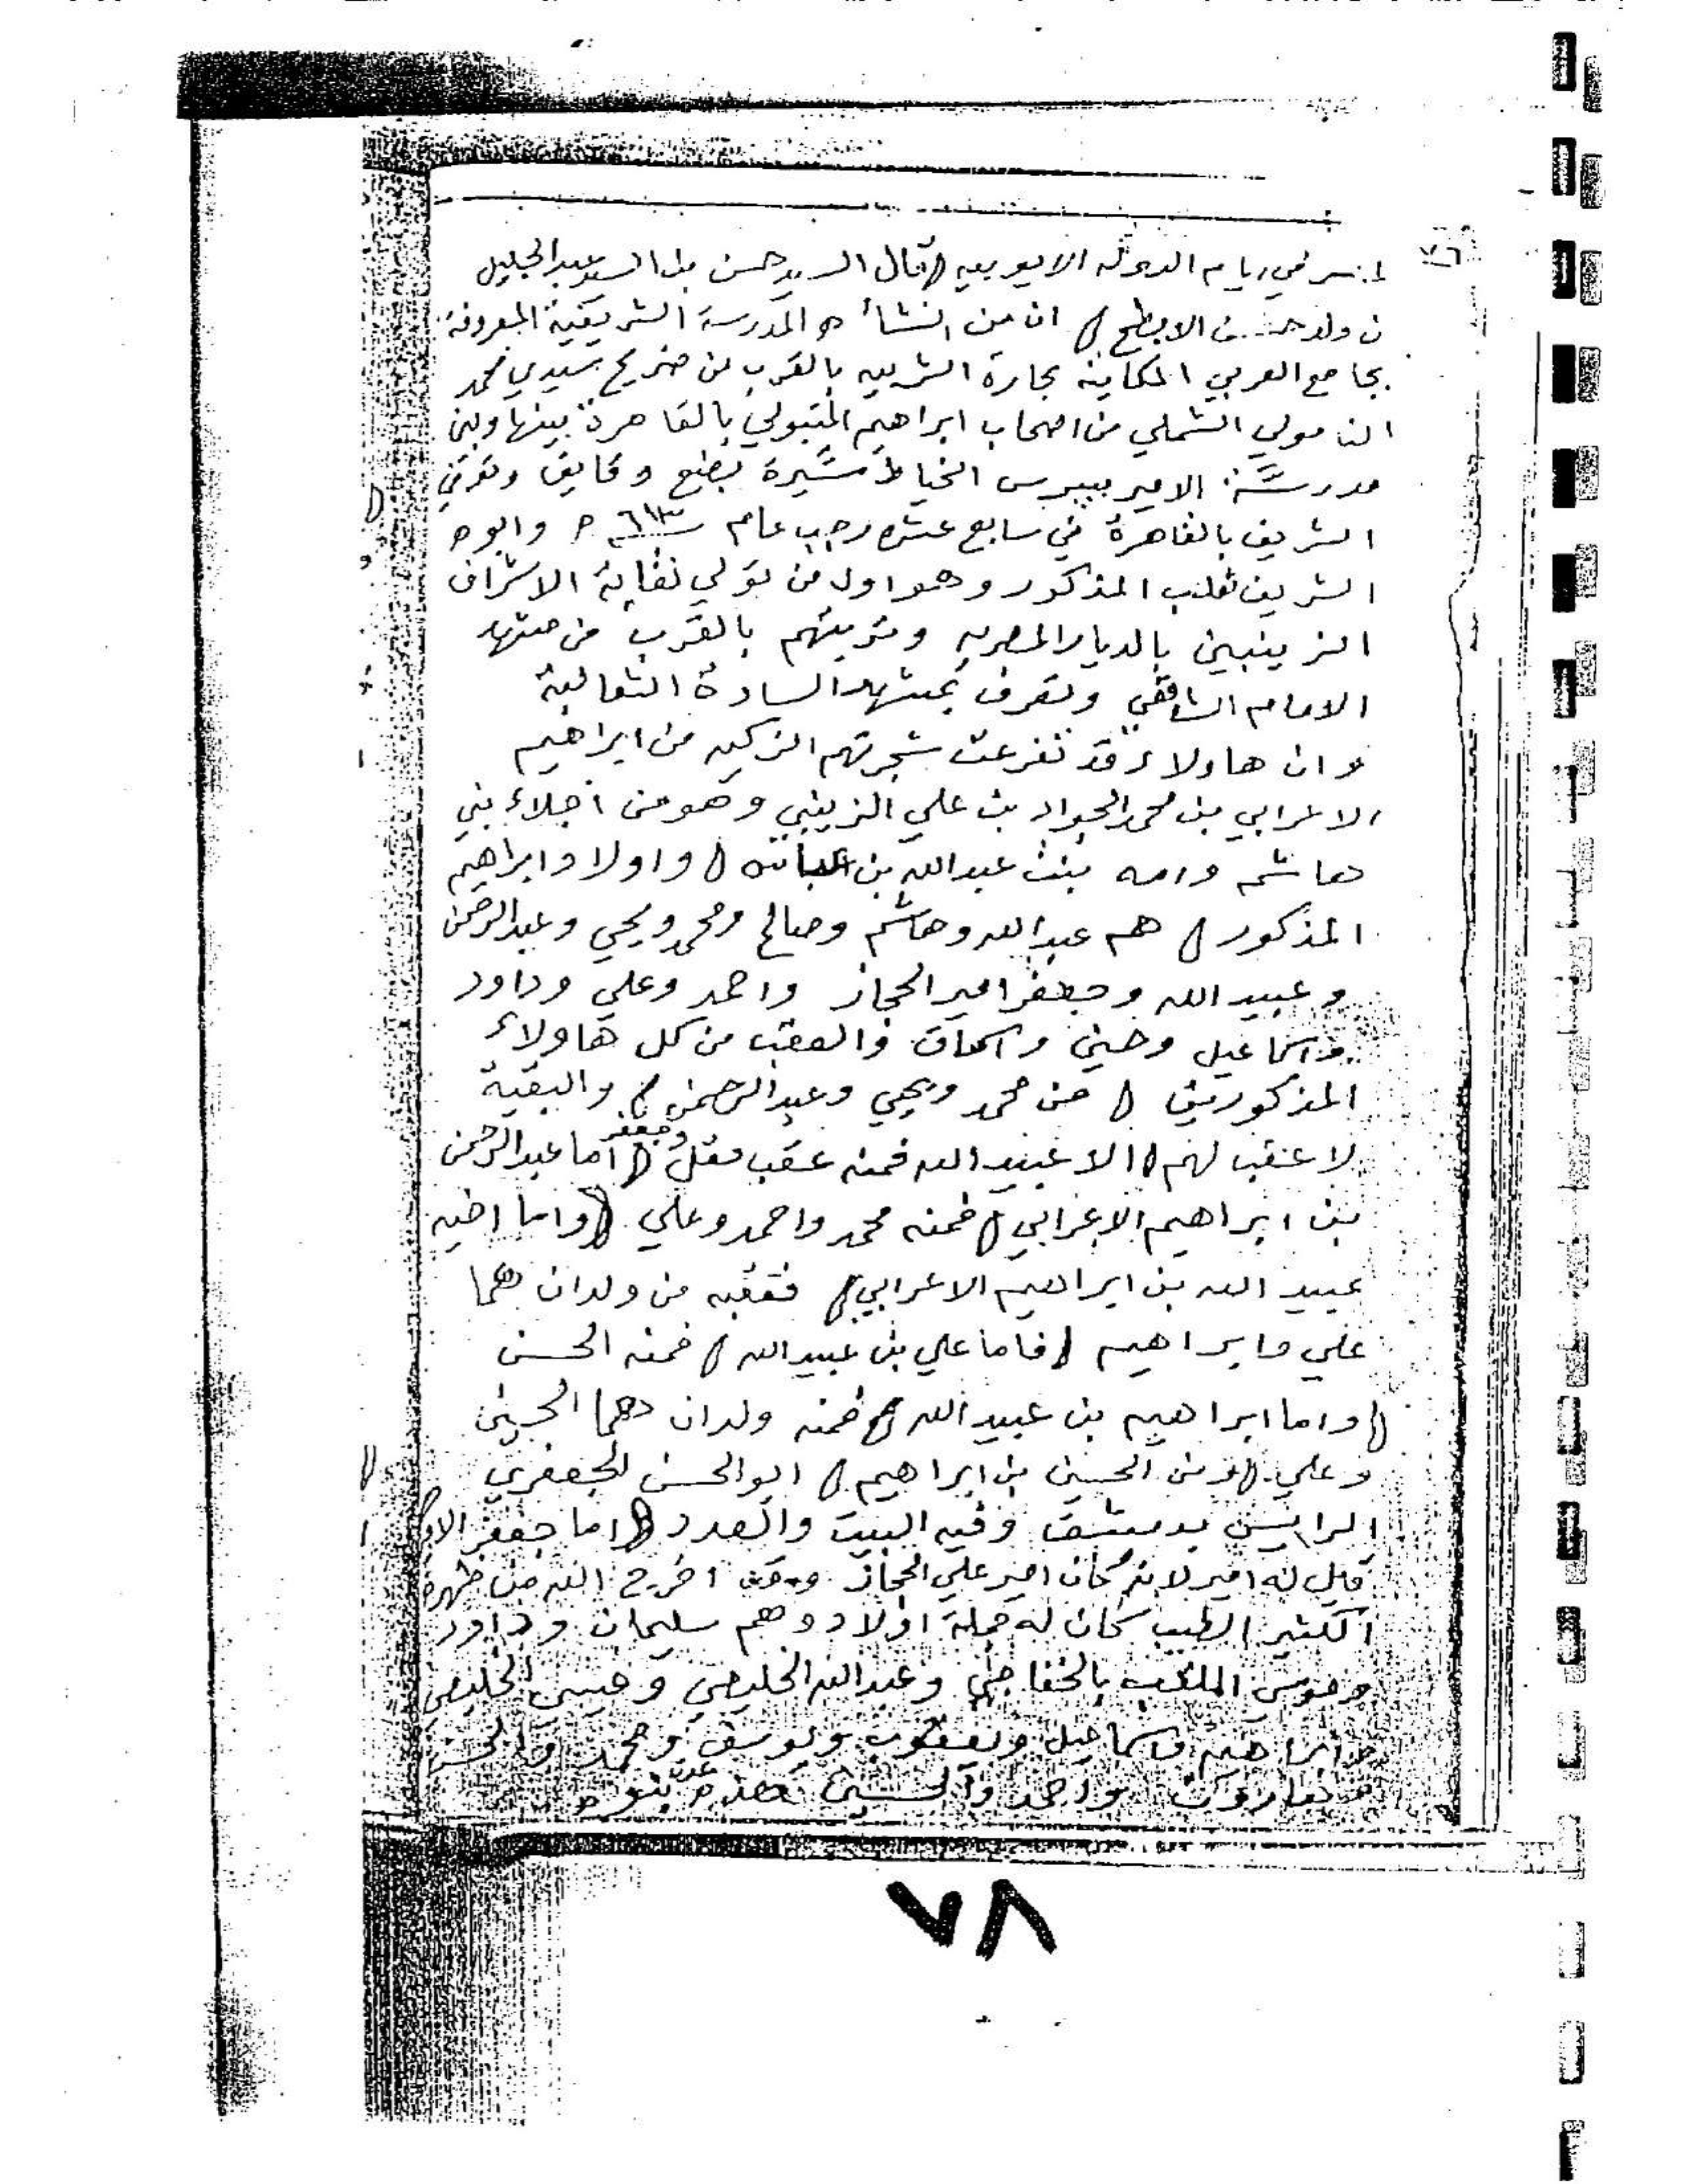 ٧٦
في ايام الدوله الايوبيه قال السيد حسن بن السيد عبدالجليل
ن ولد الابطح ان من انشأه المدرسة الشريفية المعروفة
بجامع العربي الكاينه بحارة الشربيه بالقرب من ضريح سيدي محمد
النامولي الشملي من اصحاب ابراهيم المتبولي بالقاهرة بينها وبين
مدرسة الامير بيبرس الخياط مسيرة بضع دقايق وتوفي
الشريف بالقاهرة في سابع عشر رجب عام ٦١٣ ه وابوه
الشريف ثعلب المذكور وهو اول من تولي نقابة الاشراف
الزينبين بالديار المصريه وتربتهم بالقرب من مشهد
الامام الشافعي وتعرف بمشهد السادة الثعالبة
وان هاولاء قد تفرعت شجرتهم الزكيه من ابراهيم
الاعرابي بن محمد الجواد بن علي الزينبي وهو من اجلاء بني
هاشم وامه بنت عبدالله بن العباس واولاد ابراهيم
المذكور هم عبدالله وهاشم وصالح ومحمد ويحي وعبدالرحمن
وعبيدالله وجعفر امير الحجاز واحمد وعلي وداود
واسماعيل وحسين واسحاق والعقب من كل هاولاء
المذكورين من محمد ويحي وعبدالرحمن وجعفر والبقية
لا عقب لهم الا عبيدالله فمنه عقب مقل اما عبدالرحمن
بن ابراهيم الاعرابي فمنه محمد واحمد وعلي واما اخيه
عبيد الله بن ابراهيم الاعرابي فعقبه من ولدان هما
علي وابراهيم فاما علي بن عبيدالله فمنه الحسن
واما ابراهيم بن عبيد الله فمنه ولدان هما الحسين
وعلي ومن الحسين بن ابراهيم ابوالحسن الجعفري
الرايس بدمشق وفيه البيت والعدد اما جعفر
قيل له امير لانه كان امير علي الحجاز وقد اخرج الله من ظهره
الكثير الطيب كان له جملة اولاد وهم سليمان وداود
وموسى الملقب بالخفاجي وعبدالله الخليصي وعيسى الخليصي
وابراهيم واسماعيل ويعقوب ويوسف ومحمد والحسن
وهارون واحمد والحسين هذه عدة بنوه
٧٨